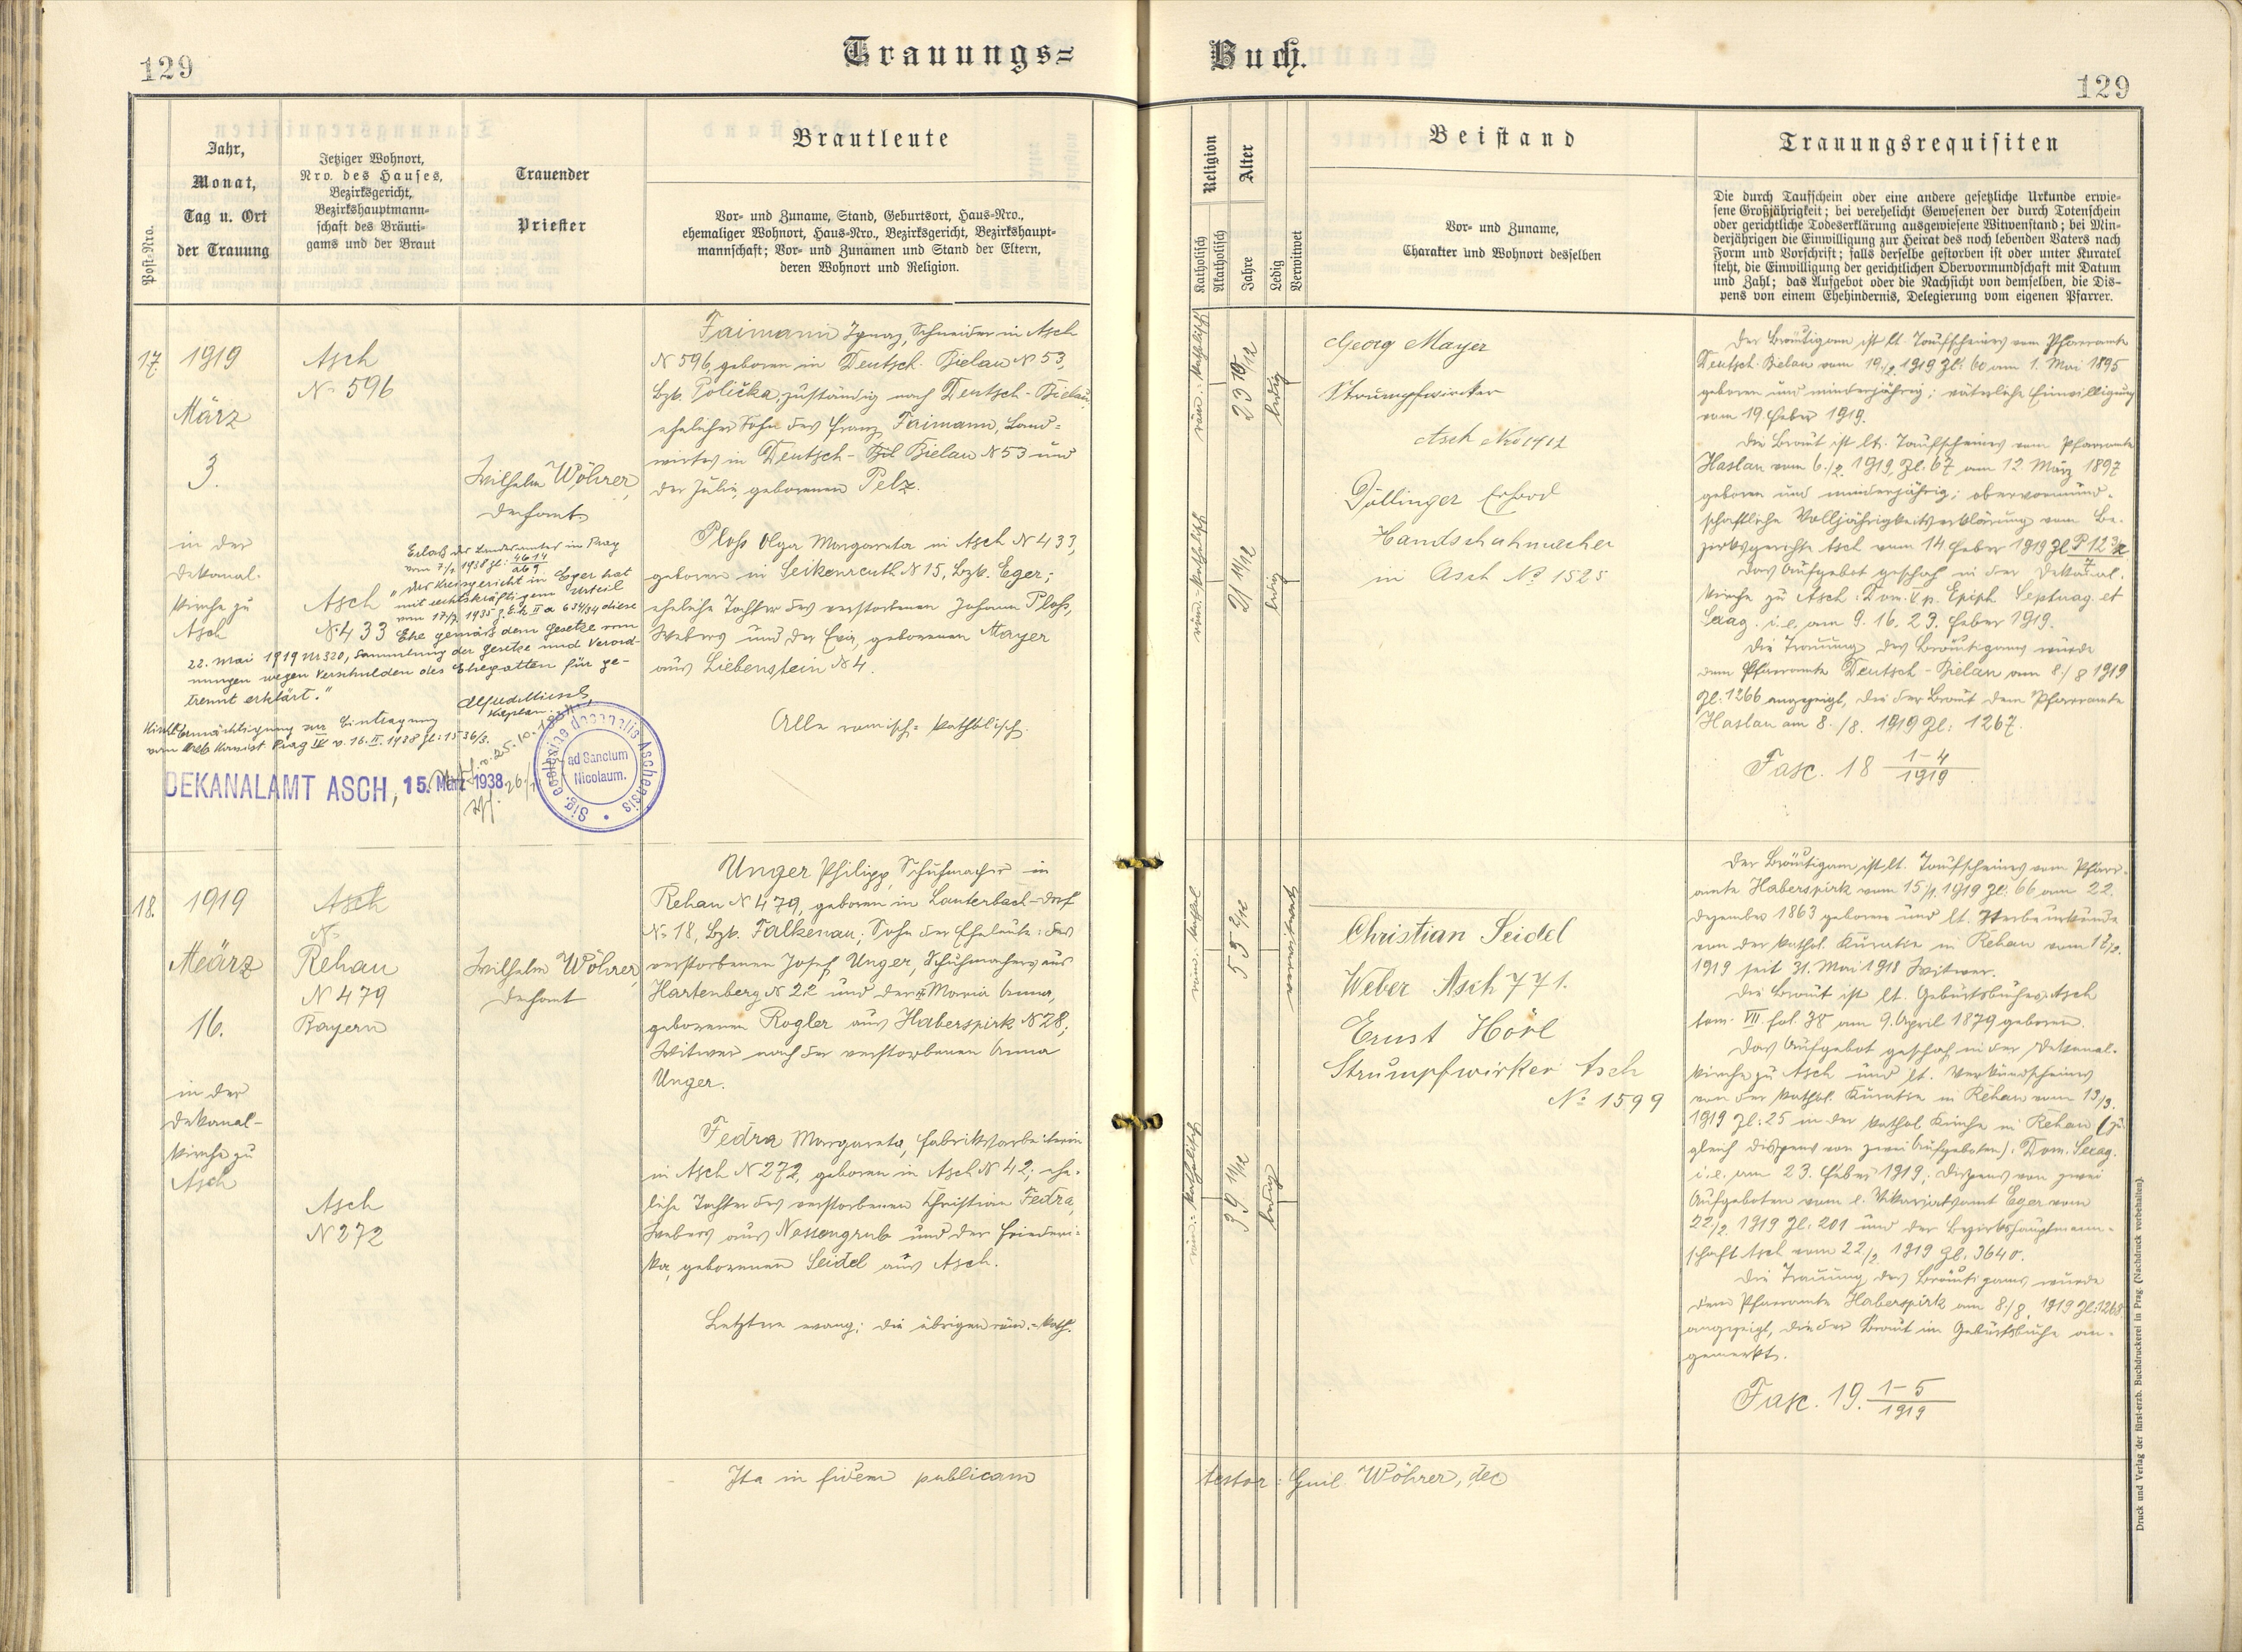 129
Trauungs=
Buch.
129
Post=Nro.
Jahr,
Monat,
Tag u. Ort
der Trauung
Jetziger Wohnort,
Nro. des Hauses,
Bezirksgericht,
Bezirkshauptmann=
schaft des Bräuti=
gams und der Braut
Trauender
Priester
Brautleute
Vor= und Zuname, Stand, Geburtsort, Haus=Nro.,
ehemaliger Wohnort, Haus=Nro., Bezirksgericht, Bezirkshaupt=
mannschaft; Vor= und Zunamen und Stand der Eltern,
deren Wohnort und Religion.
Religion
Katholisch
Akatholisch
Alter
Jahre
Ledig
Verwitwet
Beistand
Vor= und Zuname,
Charakter und Wohnort desselben
Trauungsrequisiten
Die durch Taufschein oder eine andere gesetzliche Urkunde erwie=
sene Großjährigkeit; bei verehelicht Gewesenen der durch Totenschein
oder gerichtliche Todeserklärung ausgewiesene Witwenstand; bei Min=
derjährigen die Einwilligung zur Heirat des noch lebenden Vaters nach
Form und Vorschrift; falls derselbe gestorben ist oder unter Kuratel
steht, die Einwilligung der gerichtlichen Obervormundschaft mit Datum
und Zahl; das Aufgebot oder die Nachsicht von demselben, die Dis=
pens von einem Ehehindernis, Delegierung vom eigenen Pfarrer.
17.
1919
März
3.
in der
Dekanal-
kirche zu
Asch
Asch
N. 596
Asch
N. 433
Wilhelm Wöhrer,
Dechant
Erlaß des Landesamtes in Prag
vom 7/1. 1938 Zl:
"Das Kreisgericht in Eger hat
mit rechtskräftigem Urteil
vom 17/7 1935 diese
Ehe gemäß dem Gesetze vom
22. Mai 1919 Nr 320, Sammlung der Gesetze und Verord-
nungen wegen Verschulden des Ehegatten für ge-
trennt erklärt."
Kaplan.
Ermächtigung zur Eintragung
vom Prag IV v. 16. II. 1938 Zl: 1536/3.
DEKANALAMT ASCH, 15. März 1938.
Sig. ecclesiae decanalis Aschensis
ad Sanctum
Nicolaum.
Faimann Ignaz, Schneider in Asch
N 596, geboren in Deutsch-Bielau N 53,
Bzk. Polička, zuständig nach Deutsch-Bielau,
ehelicher Sohn des Franz Faimann, Land=
wirtes in Deutsch-Bielau N 53 und
der Julie, geborenen Pelz.
Ploß Olga Margareta in Asch N 433,
geboren in Seikenreuth N 15, Bzk. Eger;
eheliche Tochter des verstorbenen Johann Ploß,
Webers und der Eva, geborenen Mayer
aus Liebenstein N 4.
Alle römisch=katholisch.
röm.=katholisch
23 10/12
ledig
röm.=katholisch
21 11/12
ledig
Georg Mayer
Strumpfwirker
Asch Nro 1912
Döllinger Erhard
Handschuhmacher
in Asch No. 1525
Der Bräutigam ist lt. Taufscheines vom Pfarramte
Deutsch-Bielau vom 19./2. 1919 Zl: 60 am 1. Mai 1895
geboren und minderjährig; väterliche Einwilligung
vom 19. Feber 1919.
Die Braut ist lt. Taufscheines vom Pfarramte
Haslau vom 6./2. 1919 Zl: 67 am 12. März 1897
geboren und minderjährig; obervormund-
schaftliche Volljährigkeitserklärung vom Be-
zirksgerichte Asch vom 14 Feber 1919 Zl
Das Aufgebot geschah in der Dekanal-
kirche zu Asch: Dom. V p. Epiph. Septuag. et
Sexag. i. e. am 9. 16. 23. Feber 1919.
Die Trauung des Bräutigams wurde
dem Pfarramte Deutsch-Bielau am 8./8 1919
Zl: 1266 angezeigt, die der Braut dem Pfarramte
Haslau am 8./8. 1919 Zl: 1267.
Fasc. 18 1-4/1919
18.
1919
März
16.
in der
Dekanal-
kirche zu
Asch
Asch
N.
Rehau
N 479
Bayern
Asch
N 272
Wilhelm Wöhrer,
Dechant
Unger Philipp, Schuhmacher in
Rehau N 479, geboren in Lauterbach-Dorf
N. 18, Bzk. Falkenau; Sohn der Eheleute: des
verstorbenen Josef Unger, Schuhmachers aus
Hartenberg N 22 und der Maria Anna,
geborenen Rogler aus Haberspirk N 28;
Witwer nach der verstorbenen Anna
Unger.
Fedra Margareta, Fabriksarbeiterin
in Asch N 272, geboren in Asch N 42; ehe-
liche Tochter des verstorbenen Christian Fedra,
Webers aus Nassengrub und der Friederi-
ka, geborenen Seidel aus Asch.
Letztere evang; die übrigen röm.=kath.
röm.=kathol
55 2/12
verwitwet
röm.=katholisch
39 11/12
ledig
Christian Seidel
Weber Asch 771.
Ernst Hörl
Strumpfwirker Asch
No. 1599
Der Bräutigam ist lt. Taufscheines vom Pfarr-
amte Haberspirk vom 15/1. 1919 Zl: 66 am 22.
Dezember 1863 geboren und lt. Sterbeurkunde
von der kathol. Kuratie in Rehau vom
1919 seit 31. Mai 1918 Witwer.
Die Braut ist lt. Geburtsbuches Asch
tom. VII. fol. 38 am 9. April 1879 geboren.
Das Aufgebot geschah in der Dekanal-
kirche zu Asch und lt. Verkündscheines
von der kathol. Kuratie in Rehau vom 13/3.
1919 Zl: 25 in der kathol Kirche in Rehau (zu
gleich Dispens von zwei Aufgeboten): Dom. Sexag.
i. e. am 23. Feber 1919; Dispens von zwei
Aufgeboten vom Vikariatsamt Eger vom
22./2. 1919 Zl: 201 und der Bezirkshauptmann-
schaft Asch vom 22/2 1919 Zl: 3640.
Die Trauung des Bräutigams wurde
dem Pfarramte Haberspirk am 8./8. 1919 Zl: 1268
angezeigt, die der Braut im Geburtsbuche an-
gemerkt.
Fasc. 19. 1-5/1919
Ita in fidem publicam
testor: Guil. Wöhrer, dec
Druck und Verlag der fürst-erzb. Buchdruckerei in Prag. (Nachdruck vorbehalten).